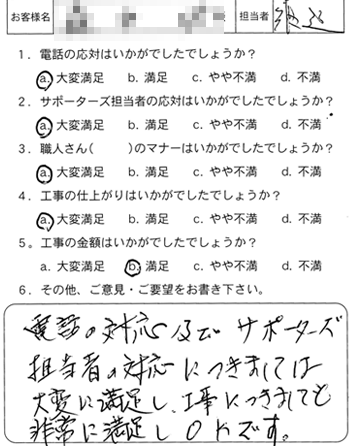 お客様名 様 担当者
1．電話の応対はいかがでしたでしょうか？
a. 大変満足 b. 満足 c. やや不満 d. 不満
2．サポーターズ担当者の応対はいかがでしたでしょうか？
a. 大変満足 b. 満足 c. やや不満 d. 不満
3．職人さん(　　　)のマナーはいかがでしたでしょうか？
a. 大変満足 b. 満足 c. やや不満 d. 不満
4．工事の仕上がりはいかがでしたでしょうか？
a. 大変満足 b. 満足 c. やや不満 d. 不満
5。工事の金額はいかがでしたでしょうか？
a. 大変満足 b. 満足 c. やや不満 d. 不満
6．その他、ご意見・ご要望をお書き下さい。
電話の対応及び サポーターズ
担当者の対応につきましては
大変に満足し、工事につきましても
非常に満足しOKです。